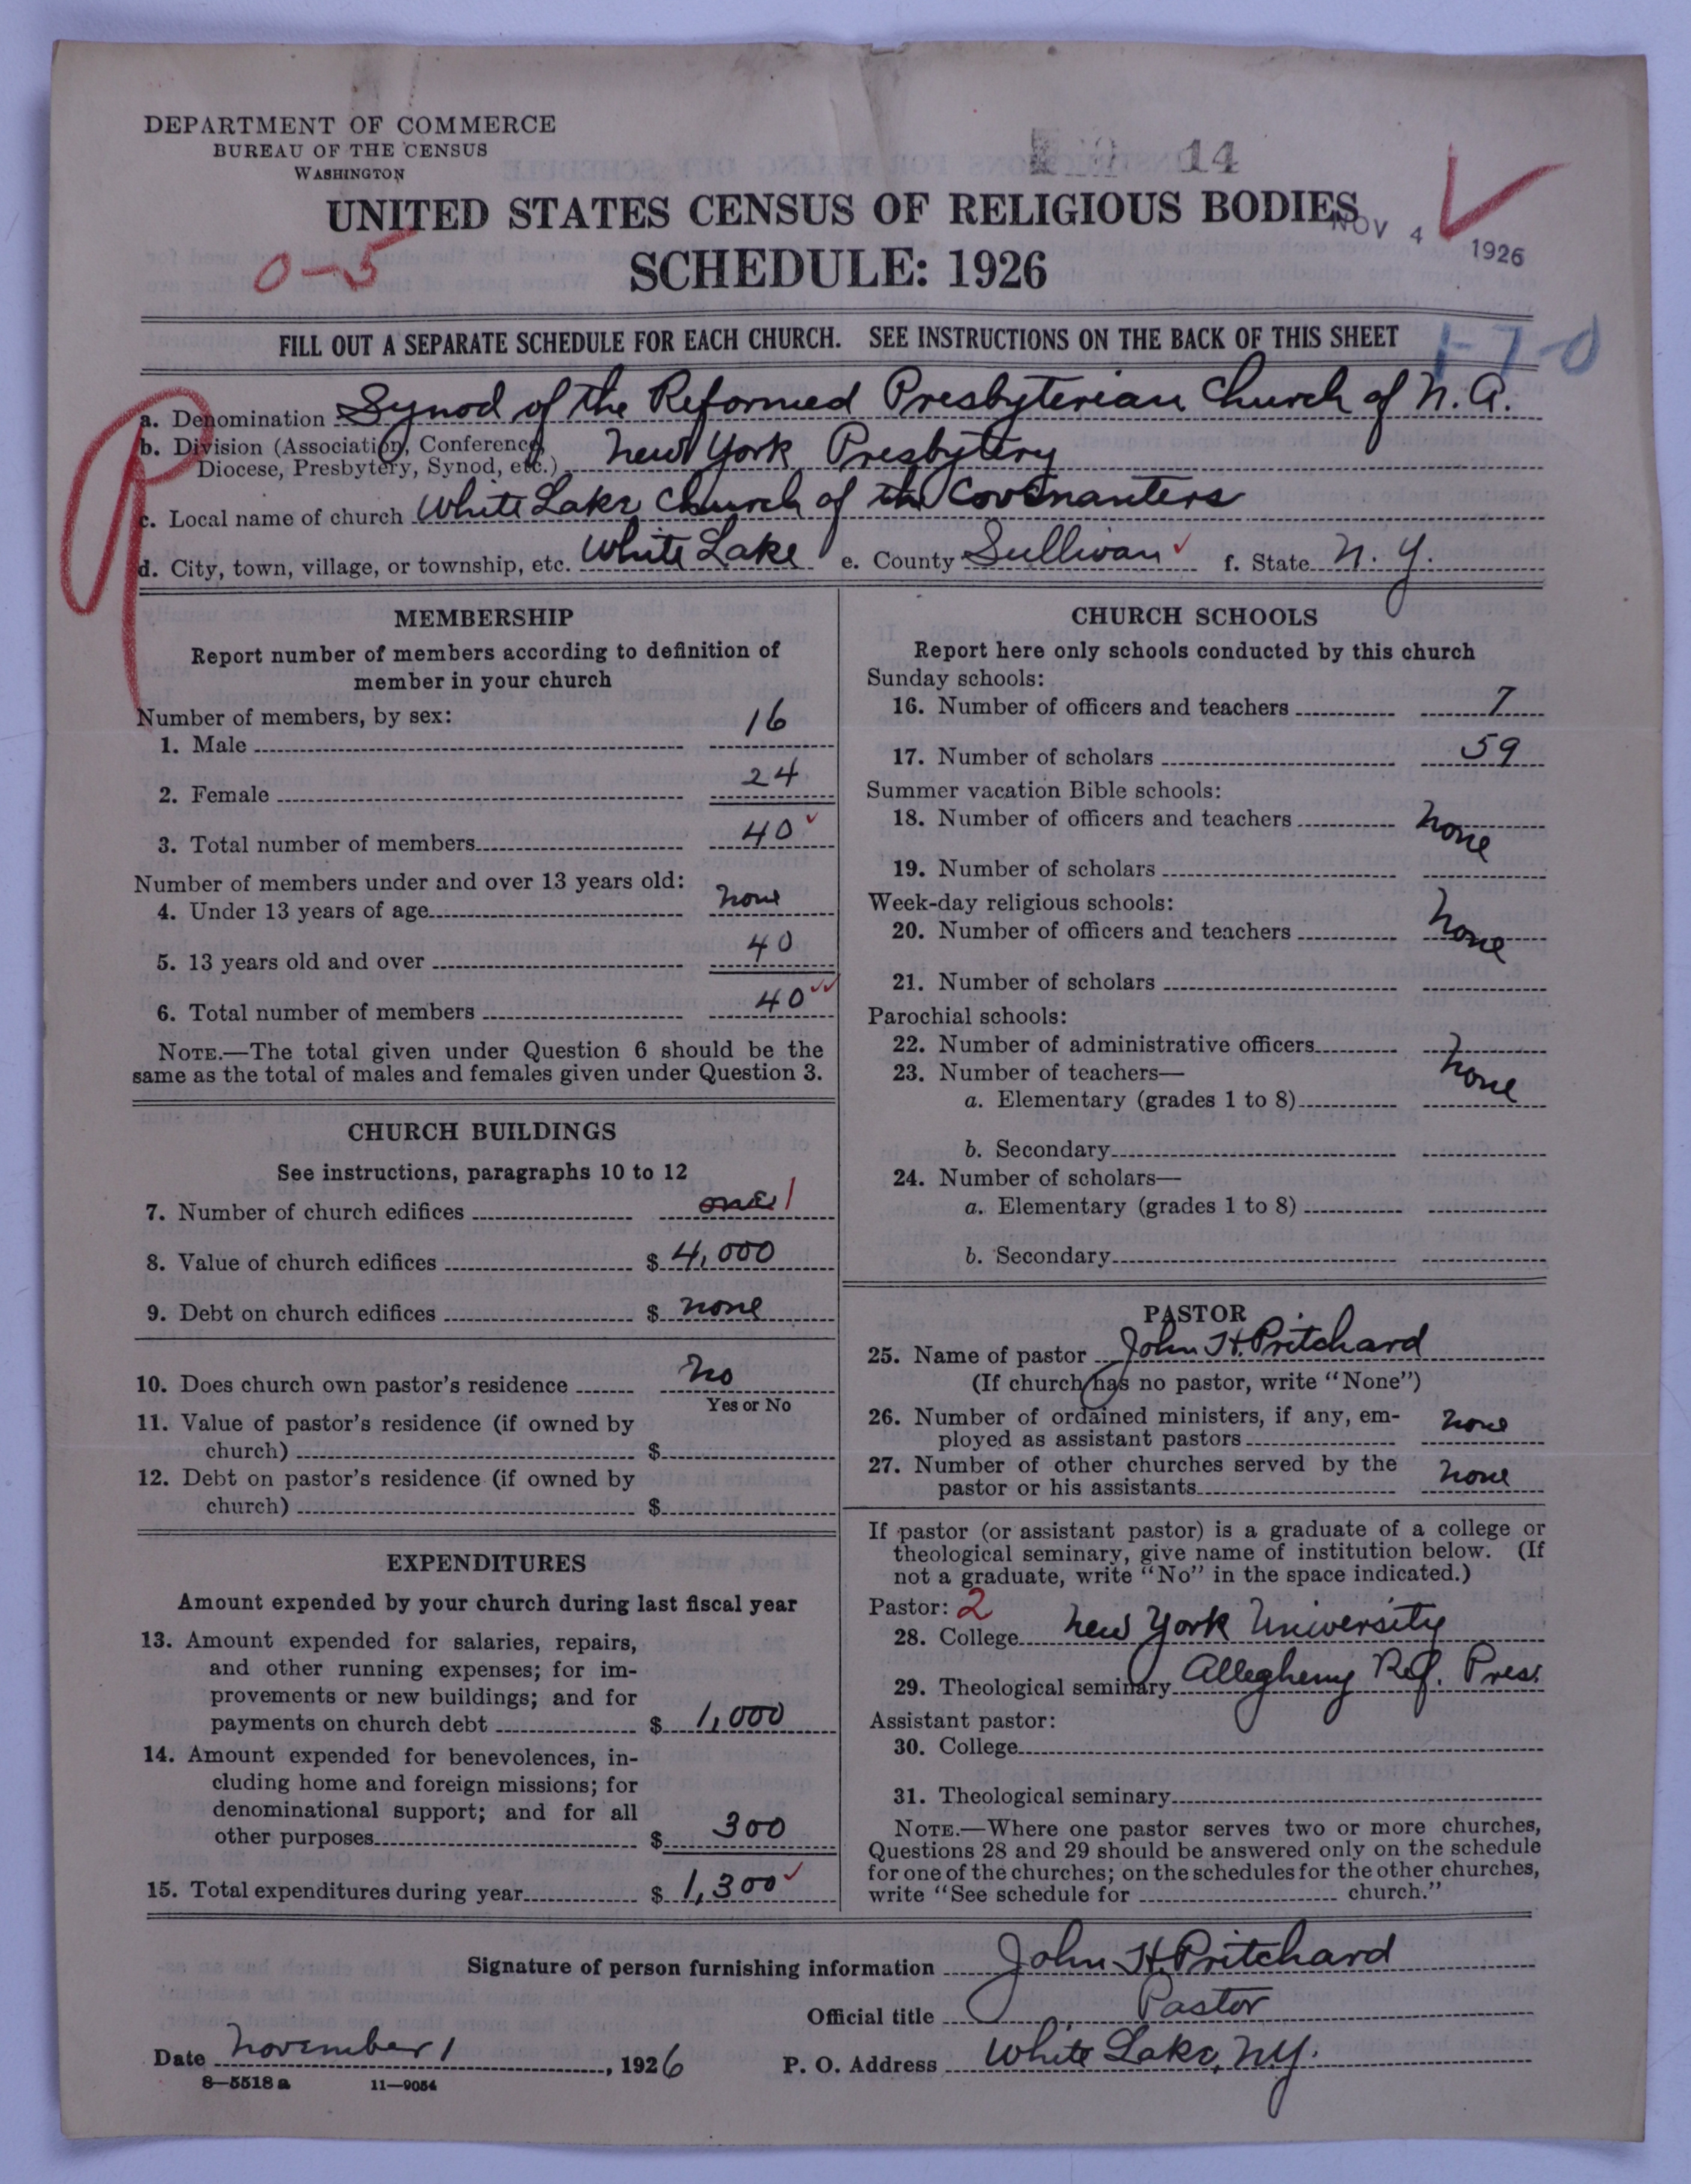 DEPARTMENT OF COMMERCE
BUREAU OF THE CENSUS
WASHINGTON
14
UNITED STATES CENSUS OF RELIGIOUS BODIES
NOV 4 1926
SCHEDULE: 1926
0-5
FILL OUT A SEPARATE SCHEDULE FOR EACH CHURCH. SEE INSTRUCTIONS ON THE BACK OF THIS SHEET
1-7-0
a. Denomination Synod of the Reformed Presbyterian Church of N.A.
b. Division (Association, Conference,
Diocese, Presbytery, Synod, etc.) New York Presbytery
c. Local name of church White Lake Church of the Covenanters
d. City, town, village, or township, etc. White Lake e. County Sullivan f. State N. Y.
MEMBERSHIP
Report number of members according to definition of
member in your church
Number of members, by sex:
1. Male 16
2. Female 24
3. Total number of members 40
Number of members under and over 13 years old:
4. Under 13 years of age none
5. 13 years old and over 40
6. Total number of members 40
NOTE.—The total given under Question 6 should be the
same as the total of males and females given under Question 3.
CHURCH BUILDINGS
See instructions, paragraphs 10 to 12
7. Number of church edifices one 1
8. Value of church edifices $ 4,000
9. Debt on church edifices $ none
10. Does church own pastor's residence No
Yes or No
11. Value of pastor's residence (if owned by
church) $
12. Debt on pastor's residence (if owned by
church) $
EXPENDITURES
Amount expended by your church during last fiscal year
13. Amount expended for salaries, repairs,
and other running expenses; for im-
provements or new buildings; and for
payments on church debt $ 1,000
14. Amount expended for benevolences, in-
cluding home and foreign missions; for
denominational support; and for all
other purposes $ 300
15. Total expenditures during year $ 1,300
CHURCH SCHOOLS
Report here only schools conducted by this church
Sunday schools:
16. Number of officers and teachers 7
17. Number of scholars 59
Summer vacation Bible schools:
18. Number of officers and teachers none
19. Number of scholars
Week-day religious schools:
20. Number of officers and teachers none
21. Number of scholars
Parochial schools:
22. Number of administrative officers none
23. Number of teachers—
a. Elementary (grades 1 to 8)
b. Secondary
24. Number of scholars—
a. Elementary (grades 1 to 8)
b. Secondary
PASTOR
25. Name of pastor John H. Pritchard
(If church has no pastor, write "None")
26. Number of ordained ministers, if any, em-
ployed as assistant pastors none
27. Number of other churches served by the
pastor or his assistants none
If pastor (or assistant pastor) is a graduate of a college or
theological seminary, give name of institution below. (If
not a graduate, write "No" in the space indicated.)
Pastor: 2
28. College New York University
29. Theological seminary Allegheny Ref. Pres.
Assistant pastor:
30. College
31. Theological seminary
NOTE.—Where one pastor serves two or more churches,
Questions 28 and 29 should be answered only on the schedule
for one of the churches; on the schedules for the other churches,
write "See schedule for church."
Signature of person furnishing information John H. Pritchard
Official title Pastor
Date November 1, 1926 P. O. Address White Lake, N.Y.
8-5518a 11-9054